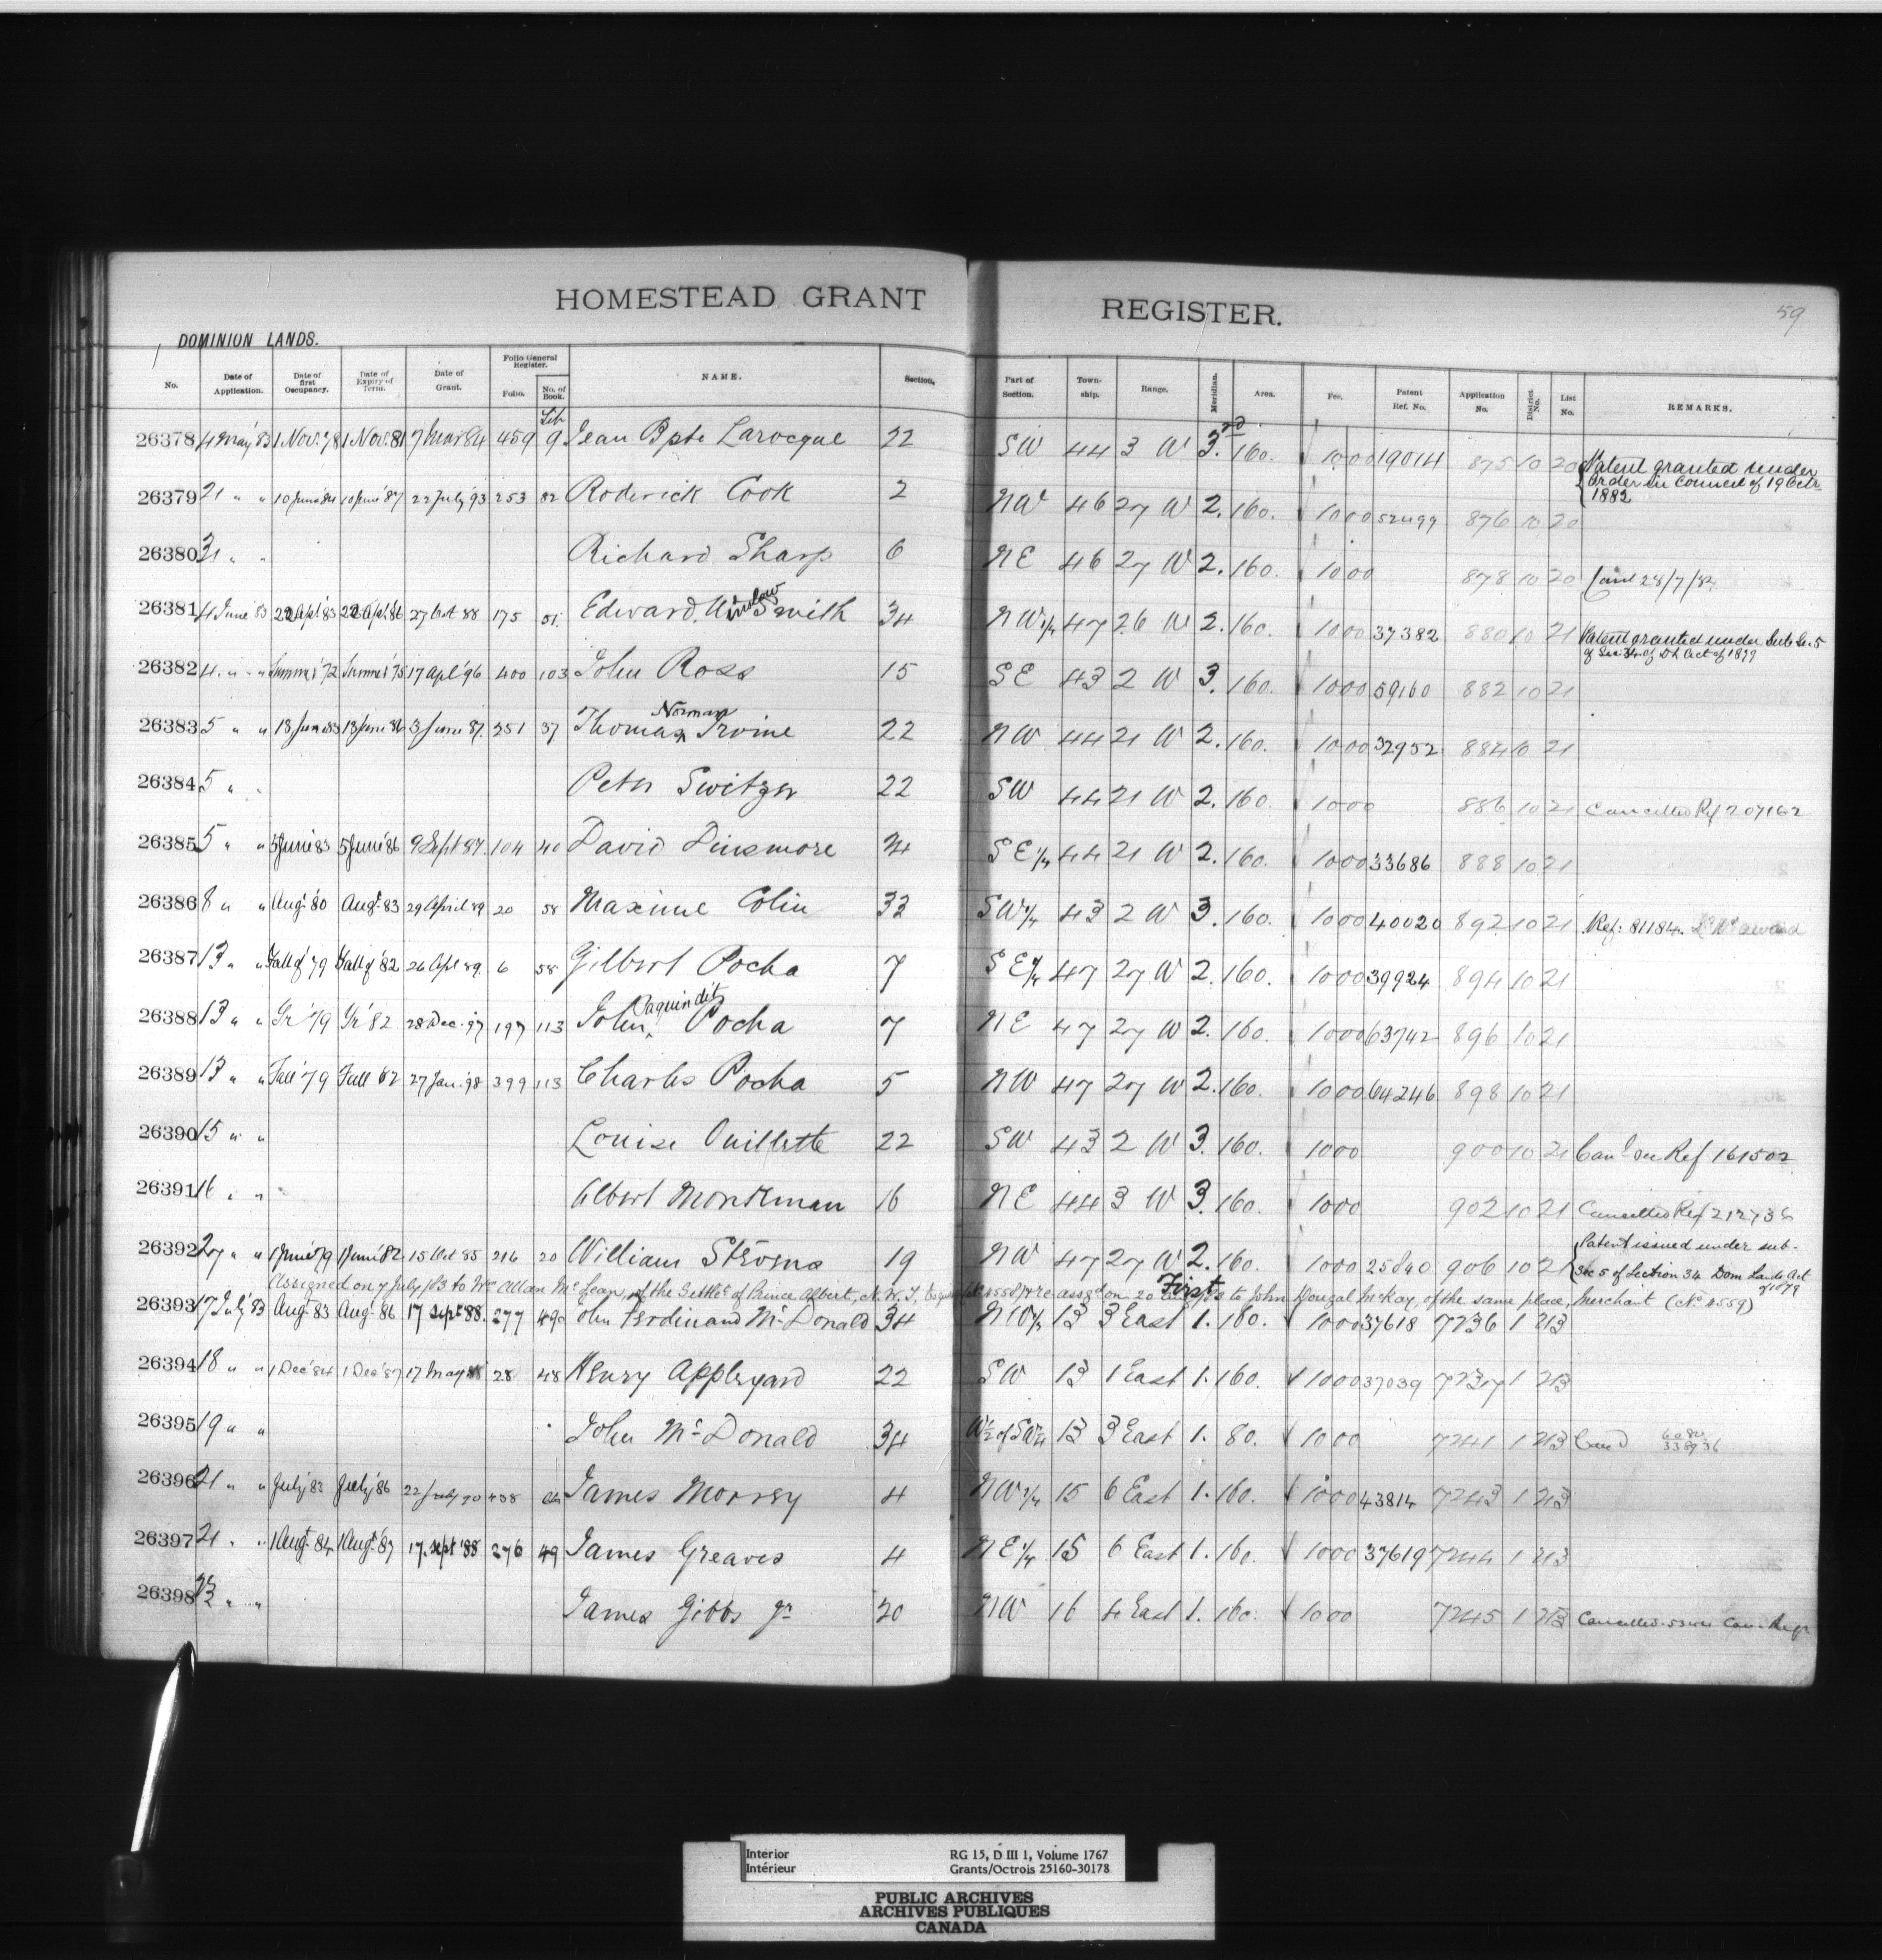 HOMESTEAD GRANT REGISTER.
59
DOMINION LANDS.
No. Date of Application. Date of first Occupancy. Date of Expiry of Term. Date of Grant. Folio General Register. Folio. No. of Book. NAME. Section. Part of Section. Town-ship. Range. Meridian. Area. Fee. Patent Ref. No. Application No. District No. List No. REMARKS.
26378 4 May '83 1 Nov. '78 1 Nov. 81 7 Mar 84 459 9 Jean Bpte Larocque 22 SW 44 3 W 3. 160. 1000 19014 875 10 20 Patent granted under
Order in Council of 19 Octr
1882
26379 21 " " 10 June '84 10 June '87 22 July '93 253 82 Roderick Cook 2 NW 46 27 W 2. 160. 1000 52499 876 10 20
26380 31 " " Richard Sharp 6 NE 46 27 W 2. 160. 1000 878 10 20
26381 4 June 83 22 Apl '83 22 Apl 86 27 Oct 88 175 51 Edward Winslow Smith 34 NW 1/4 47 26 W 2. 160. 1000 37382 880 10 21 Patent granted under Sub Sec. 5
of Sec 34 of D L Act of 1879
26382 4 " " Summer '72 Summer '75 17 Apl '96 400 103 John Ross 15 SE 43 2 W 3. 160. 1000 59160 882 10 21
26383 5 " " 13 June 83 13 June 86 3 June 87. 251 37 Thomas Norman Irvine 22 NW 44 21 W 2. 160. 1000 32952 884 10 21
26384 5 " " Peter Switzer 22 SW 44 21 W 2. 160. 1000 886 10 21 Cancelled Ref 207162
26385 5 " " 5 June 83 5 June 86 9 Sept 87. 104 40 David Dinsmore 34 SE 1/4 44 21 W 2. 160. 1000 33686 888 10 21
26386 8 " " Augt '80 Augt 83 29 April 89 20 58 Maxime Colin 33 SW 1/4 43 2 W 3. 160. 1000 40020 892 10 21 Ref: 81184.
26387 13 " " Fall of '79 Fall of '82 26 Apl 89. 6 58 Gilbert Pocha 7 SE 1/4 47 27 W 2. 160. 1000 39924 894 10 21
26388 13 " " '79 '82 28 Dec. '97 197 113 John Paquin dit Pocha 7 NE 47 27 W 2. 160. 1000 63742 896 10 21
26389 13 " " Fall '79 Fall '82 27 Jan. '98 399 113 Charles Pocha 5 NW 47 27 W 2. 160. 1000 64246 898 10 21
26390 15 " " Louise Ouillette 22 SW 43 2 W 3. 160. 1000 900 10 21 Cand see Ref 161502
26391 16 " " Albert Monkman 16 NE 44 3 W 3. 160. 1000 902 10 21 Cancelled Ref 212736
26392 27 " " 1 June '79 1 June '82 15 Oct 85 216 20 William Stevens 19 NW 47 27 W 2. 160. 1000 25840 906 10 21 Patent issued under sub-
Sec 5 of Section 34 Dom Lands Act
of 1879
Assigned on 7 July /83 to Wm Allan McLean, of the Settlet of Prince Albert, N. W. T, 4558 & re-assgd on 20 to John Dougal McKay, of the same place, Merchant (No 4559)
First
26393 17 July 83 Aug. 83 Aug. 86 17 Sept 88. 277 49 John Ferdinand McDonald 34 NW 1/4 13 3 East 1. 160. 1000 37618 7236 1 213
26394 18 " " 1 Dec '84 1 Dec '87 17 May 88 28 48 Henry Appleyard 22 SW 13 1 East 1. 160. 1000 37039 7237 1 213
26395 19 " " John McDonald 34 W 1/2 of SW 1/4 13 3 East 1. 80. 1000 7241 1 213 Cand 338936
26396 21 " " July '83 July '86 22 July 90 438 James Morrey 4 NW 1/4 15 6 East 1. 160. 1000 43814 7243 1 213
26397 21 " " 1 Augt 84 1 Augt 87 17. Sept '88 276 49 James Greaves 4 NE 1/4 15 6 East 1. 160. 1000 37619 7244 1 213
26398 " " James Gibbs Jr 20 NW 16 4 East 1. 160. 1000 7245 1 213 Cancelled
Interior
Intérieur
RG 15, D III 1, Volume 1767
Grants/Octrois 25160-30178
PUBLIC ARCHIVES
ARCHIVES PUBLIQUES
CANADA